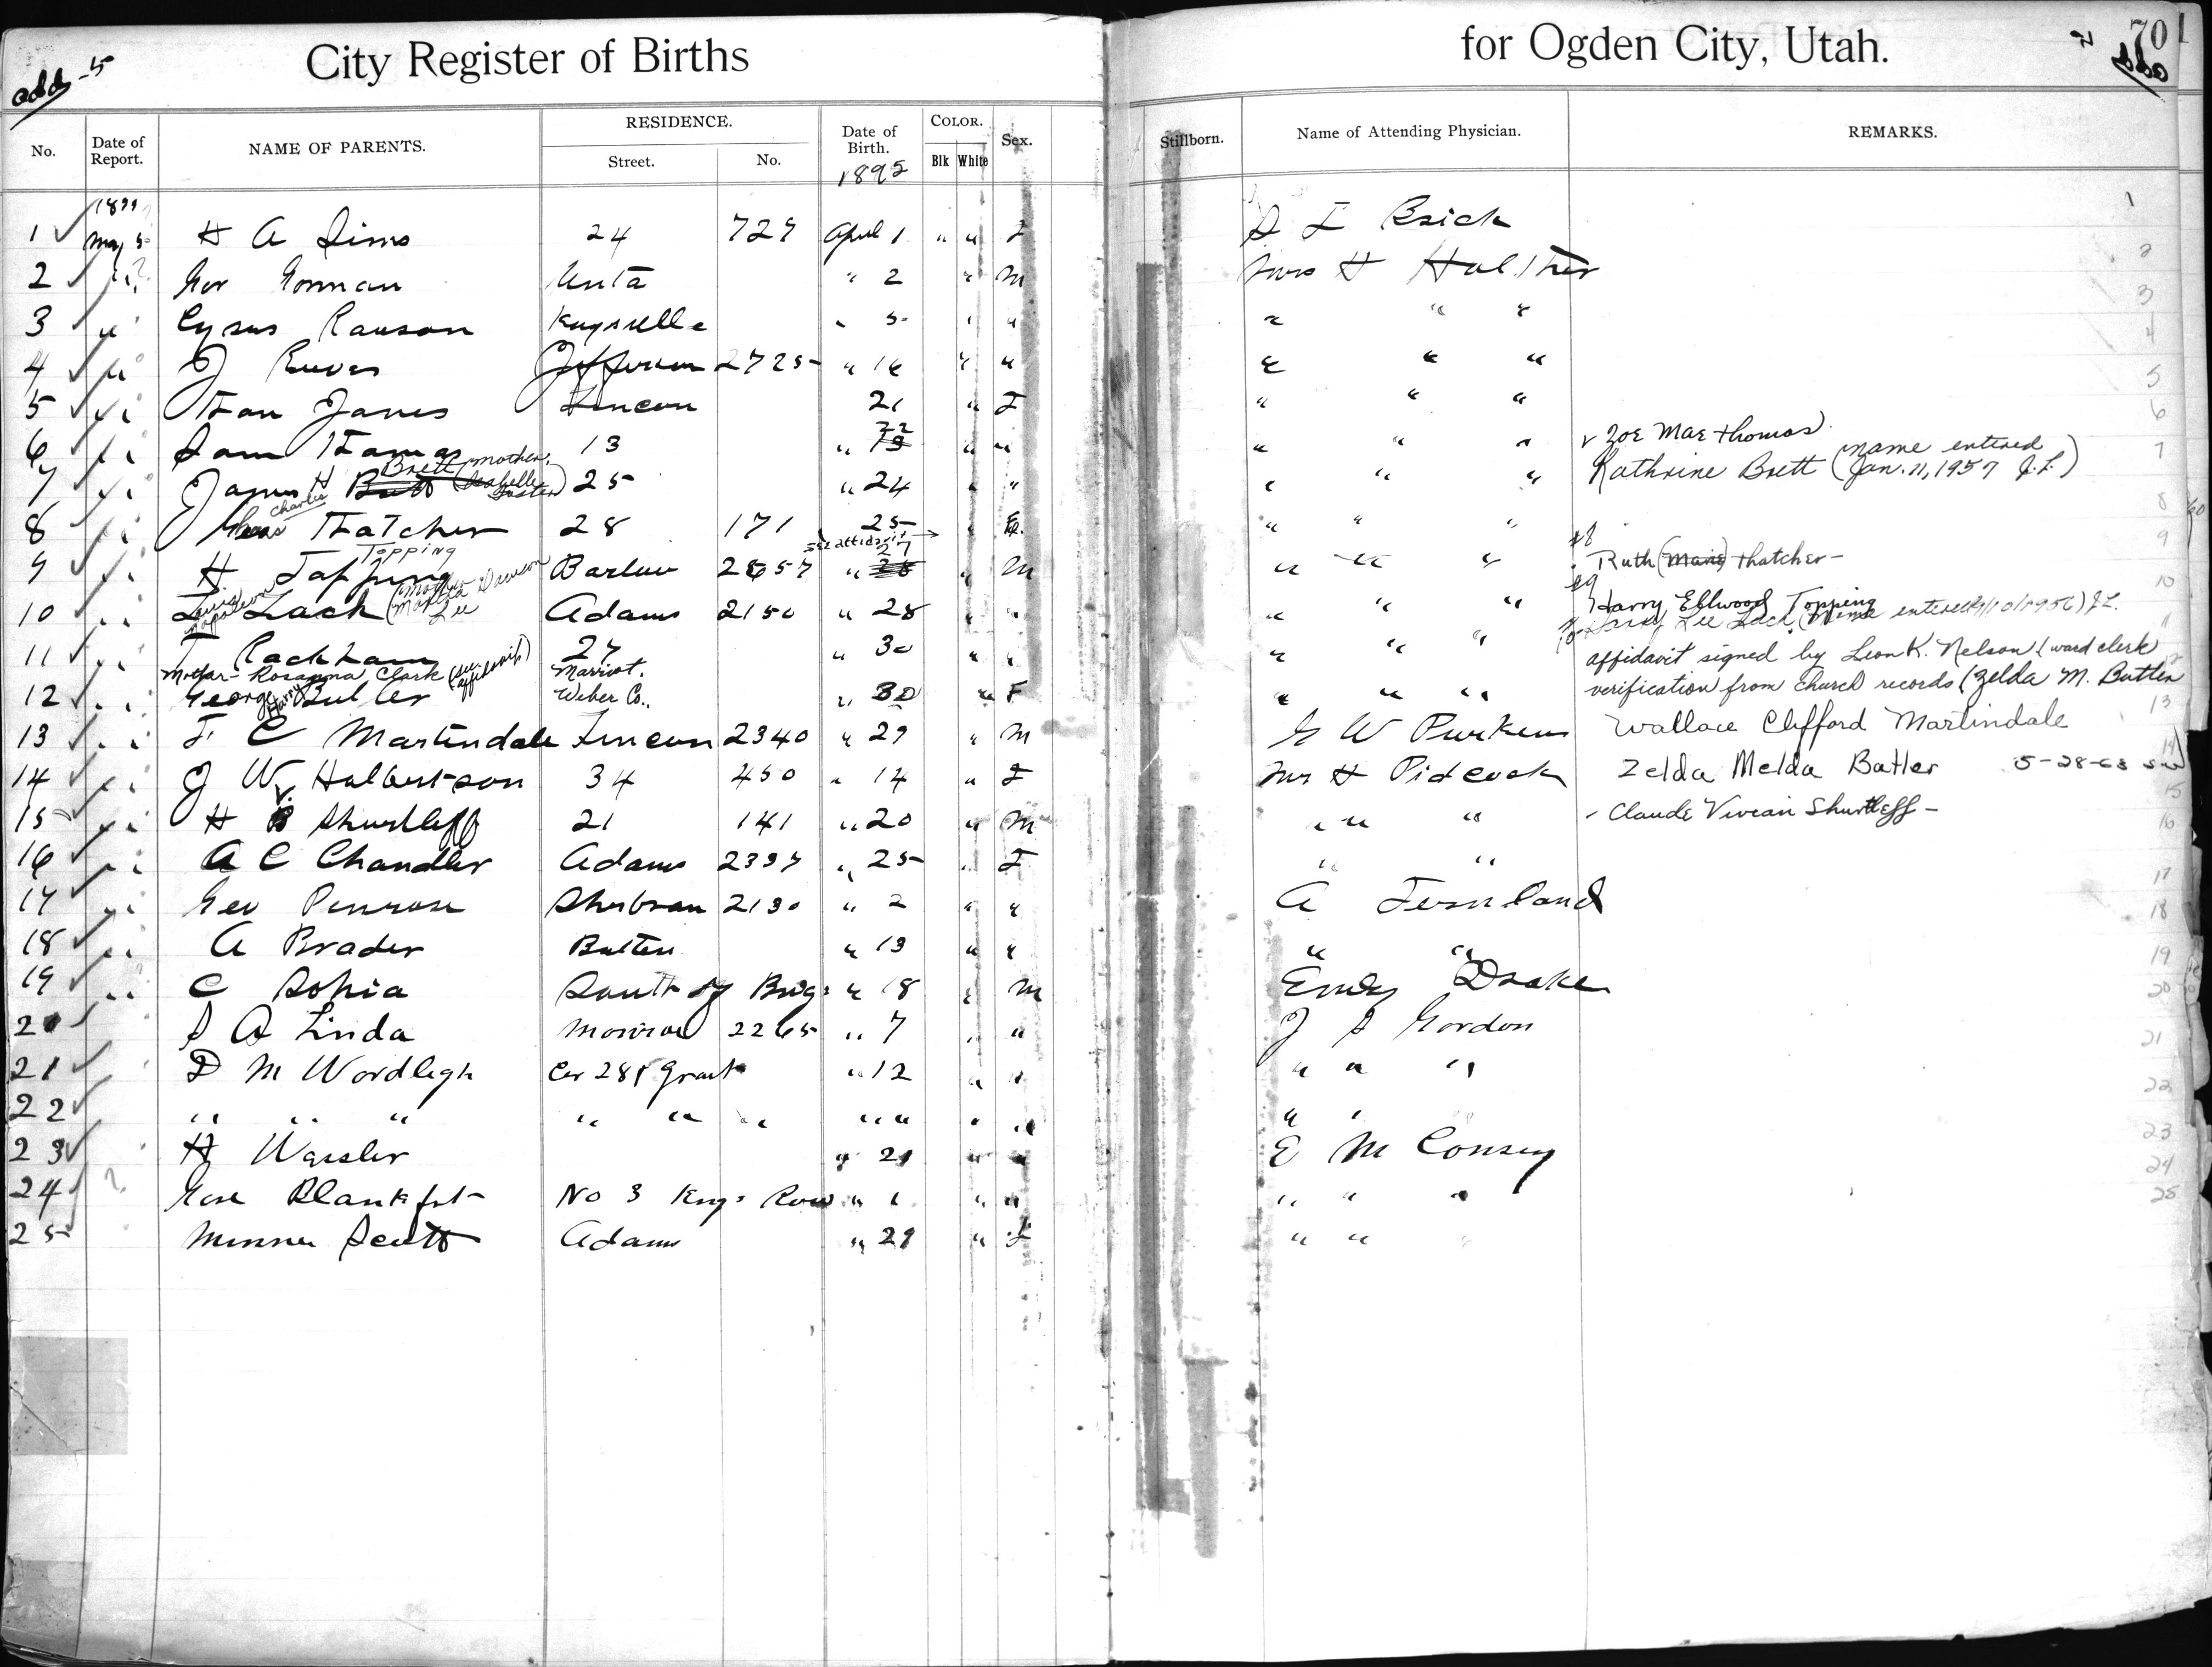 City Register of Births for Ogden City, Utah. 701
add -5
add
No. Date of Report. NAME OF PARENTS. RESIDENCE. Street. No. Date of Birth. COLOR. Blk White Sex. Stillborn. Name of Attending Physician. REMARKS.
1895
1 May 5 H A Sims 24 727 April 1 " " F 1
2 " Geo Gorman " 2 " M Mrs H 2
3 " Cyrus Rawson Kaysville " 5 " " " " " 3
4 " J Reeves Jefferson 2725 " 16 " " " " " 4
5 " Jones Lincoln 21 " F " " " 5
6 " Sam Thomas 13 " 19 22 " " " " " Zoe Mae Thomas 6
7 " James H Butt Brett (Mother, Isabelle Foster) 25 " 24 " " " " " Kathrine Brett (name entered Jan. 11, 1957 J.L.) 7
8 " Chas Charles Thatcher 28 171 25 " F. " " " #8 Ruth (Marie) Thatcher - 8
see affidavit →
9 " H Tapping Topping Barlow 2857 " 28 27 " M " " " #9 Harry Ellwood Topping 9
10 " L Louis Napoleon Zack (Mother Martha Dawson Lee Adams 2150 " 28 " " " " " Lee Zack (Name entered 1/10/1956) J.L. 10
11 " Rackham 27 " 30 " " " " " affidavit signed by Leon K. Nelson (ward clerk
Mother - Rosanna Clark (see affidavit) Marriot.
12 " George Harry Butler Weber Co.. " 30 " F " " " verification from church records (Zelda M. Butler
13 " F C Martindale Lincoln 2340 " 29 " M G W Perkins Wallace Clifford Martindale 13
14 " J W Halbertson 34 450 " 14 " F Mrs H Pidcock Zelda Melda Butler 5-28-63 14
15 " H B Shurtleff 21 141 " 20 " M " " " Claude Vivian Shurtleff - 15
16 " A C Chandler Adams 2397 " 25 " F " " 16
17 " Geo Penrose 2130 " 2 " " A Fernland 17
18 " A Brader " 13 " " " " 18
19 " C Sophia South of Brig. " 18 " M Emily Drake 19
20 S A Linda Monroe 2265 " 7 " " J S Gordon 20
21 D M Wordligh Cor 28 & Grant " 12 " " " " " 21
22 " " " " " " " " " " " " 22
23 H " 21 " " E M Conroy 23
24 Rose No 3 Kings Row " 1 " " " " " 24
25 Minnie Scott Adams " 29 " F " " " 25